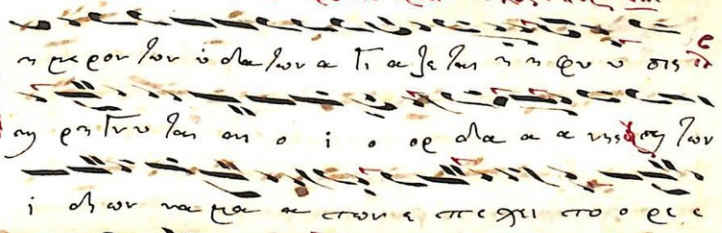 η με ρον των υ δα των α γι α ζε ται η η φυ υ σις
ϗ ρη γνυ ται ο ι ο ορ δα α α νης ϗ των
ι δι ων να μα α των ε πε χει το ο ρε ε